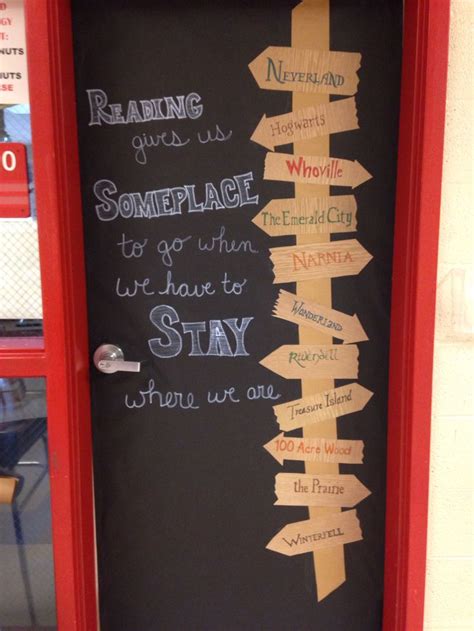 NUTS
0
READING
gives us
SOMEPLACE
to go when
we have to
STAY
where we are
NEVERLAND
Hogwarts
Whoville
The Emerald City
NARNIA
WONDERLAND
Rivendell
Treasure Island
100 Acre Wood
the Prairie
WINTERFELL